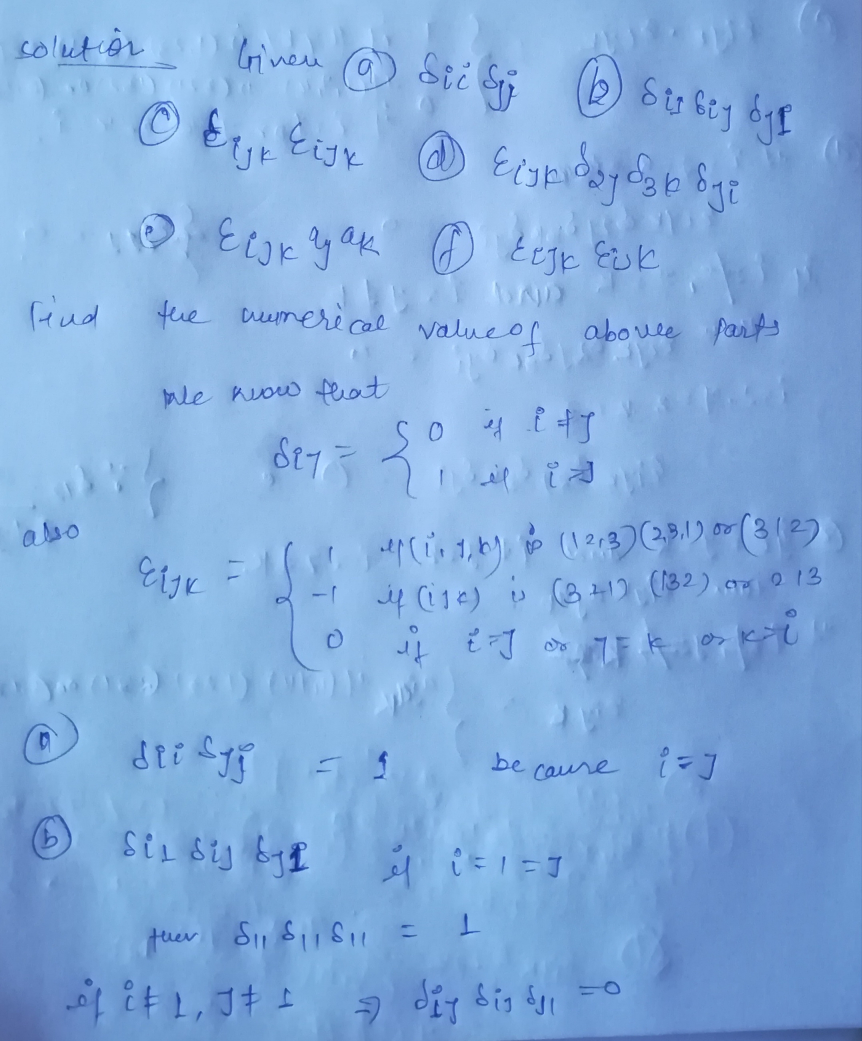 solution Given (a) δii δjj (b) δi1 δij δj1
(c) εijk εijk (d) εijk δ2j δ3k δji
(e) εijk aj ak (f) εijk εijk
Find the numerical value of above parts
We know that
δij = { 0 if i ≠ j
1 if i = j
also
εijk = { 1 if (i, j, k) is (1 2, 3) (2, 3, 1) or (3 1 2)
-1 if (ijk) is (3 2 1) (132) or 213
0 if i = j or j = k or k = i
(a) δii δjj = 1 because i = j
(b) δi1 δij δj1 if i = 1 = j
then δ11 δ11 δ11 = 1
if i ≠ 1, j ≠ 1 ⇒ δij δij δj1 = 0